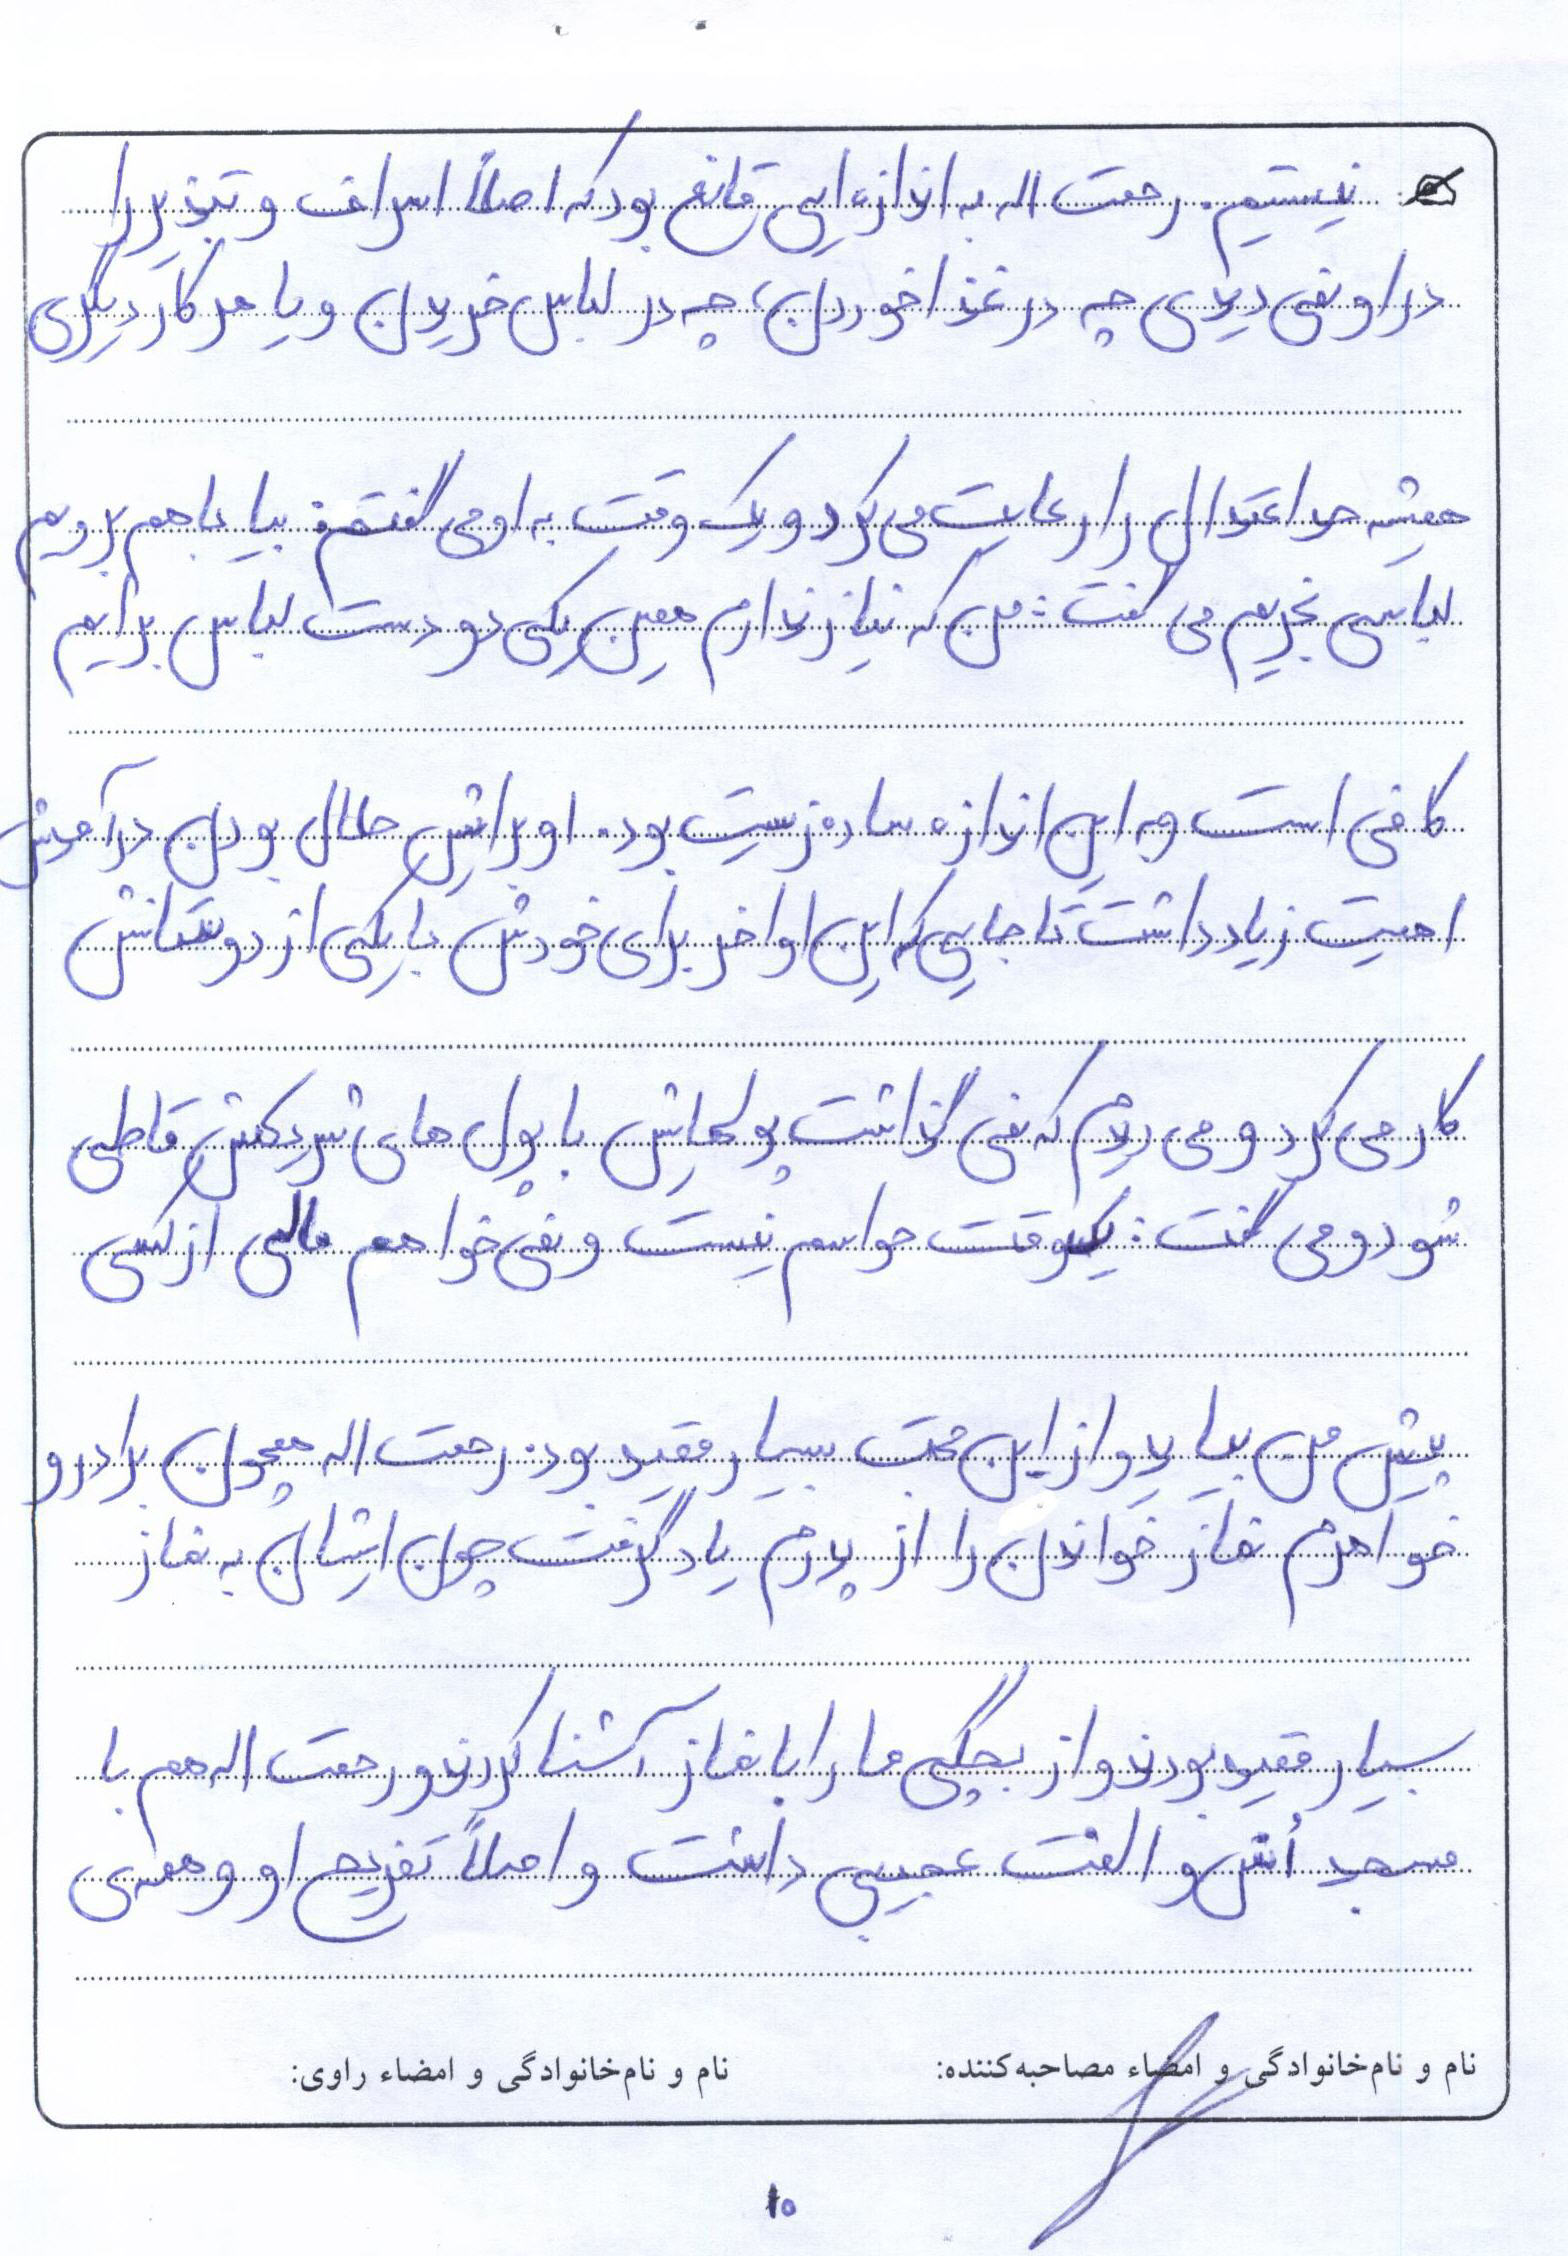 نیستیم. رحمت اله به اندازه ایی قانع بود که اصلاً اسراف و تبذیر را
در او نمی دیدی چه در غذا خوردن، چه در لباس خریدن و یا هر کار دیگری
همیشه حد اعتدال را رعایت می کرد و یک وقت به او می گفتم: بیا با هم برویم
لباسی بخریم می گفت: من که نیاز ندارم همین یکی دو دست لباس برایم
کافی است و به این اندازه ساده زیست بود. او برایش حلال بودن درآمدش
اهمیت زیاد داشت تا جایی که این اواخر برای خودش با یکی از دوستانش
کار می کرد و می دیدم که نمی گذاشت پولهایش با پول های شریکش قاطی
شود و می گفت: یکوقت حواسم نیست و نمی خواهم مالی از کسی
پیش من بیاید و از این جهت بسیار مقید بود. رحمت اله همچون برادر و
خواهرم نماز خواندن را از پدرم یاد گرفت چون ایشان به نماز
بسیار مقید بودند و از بچگی ما را با نماز آشنا کردند و رحمت اله هم با
مسجد اُنس و الفت عجیبی داشت و اصلاً تفریح او و همه ی
نام و نام‌خانوادگی و امضاء مصاحبه‌کننده:
نام و نام‌خانوادگی و امضاء راوی:
۱۰